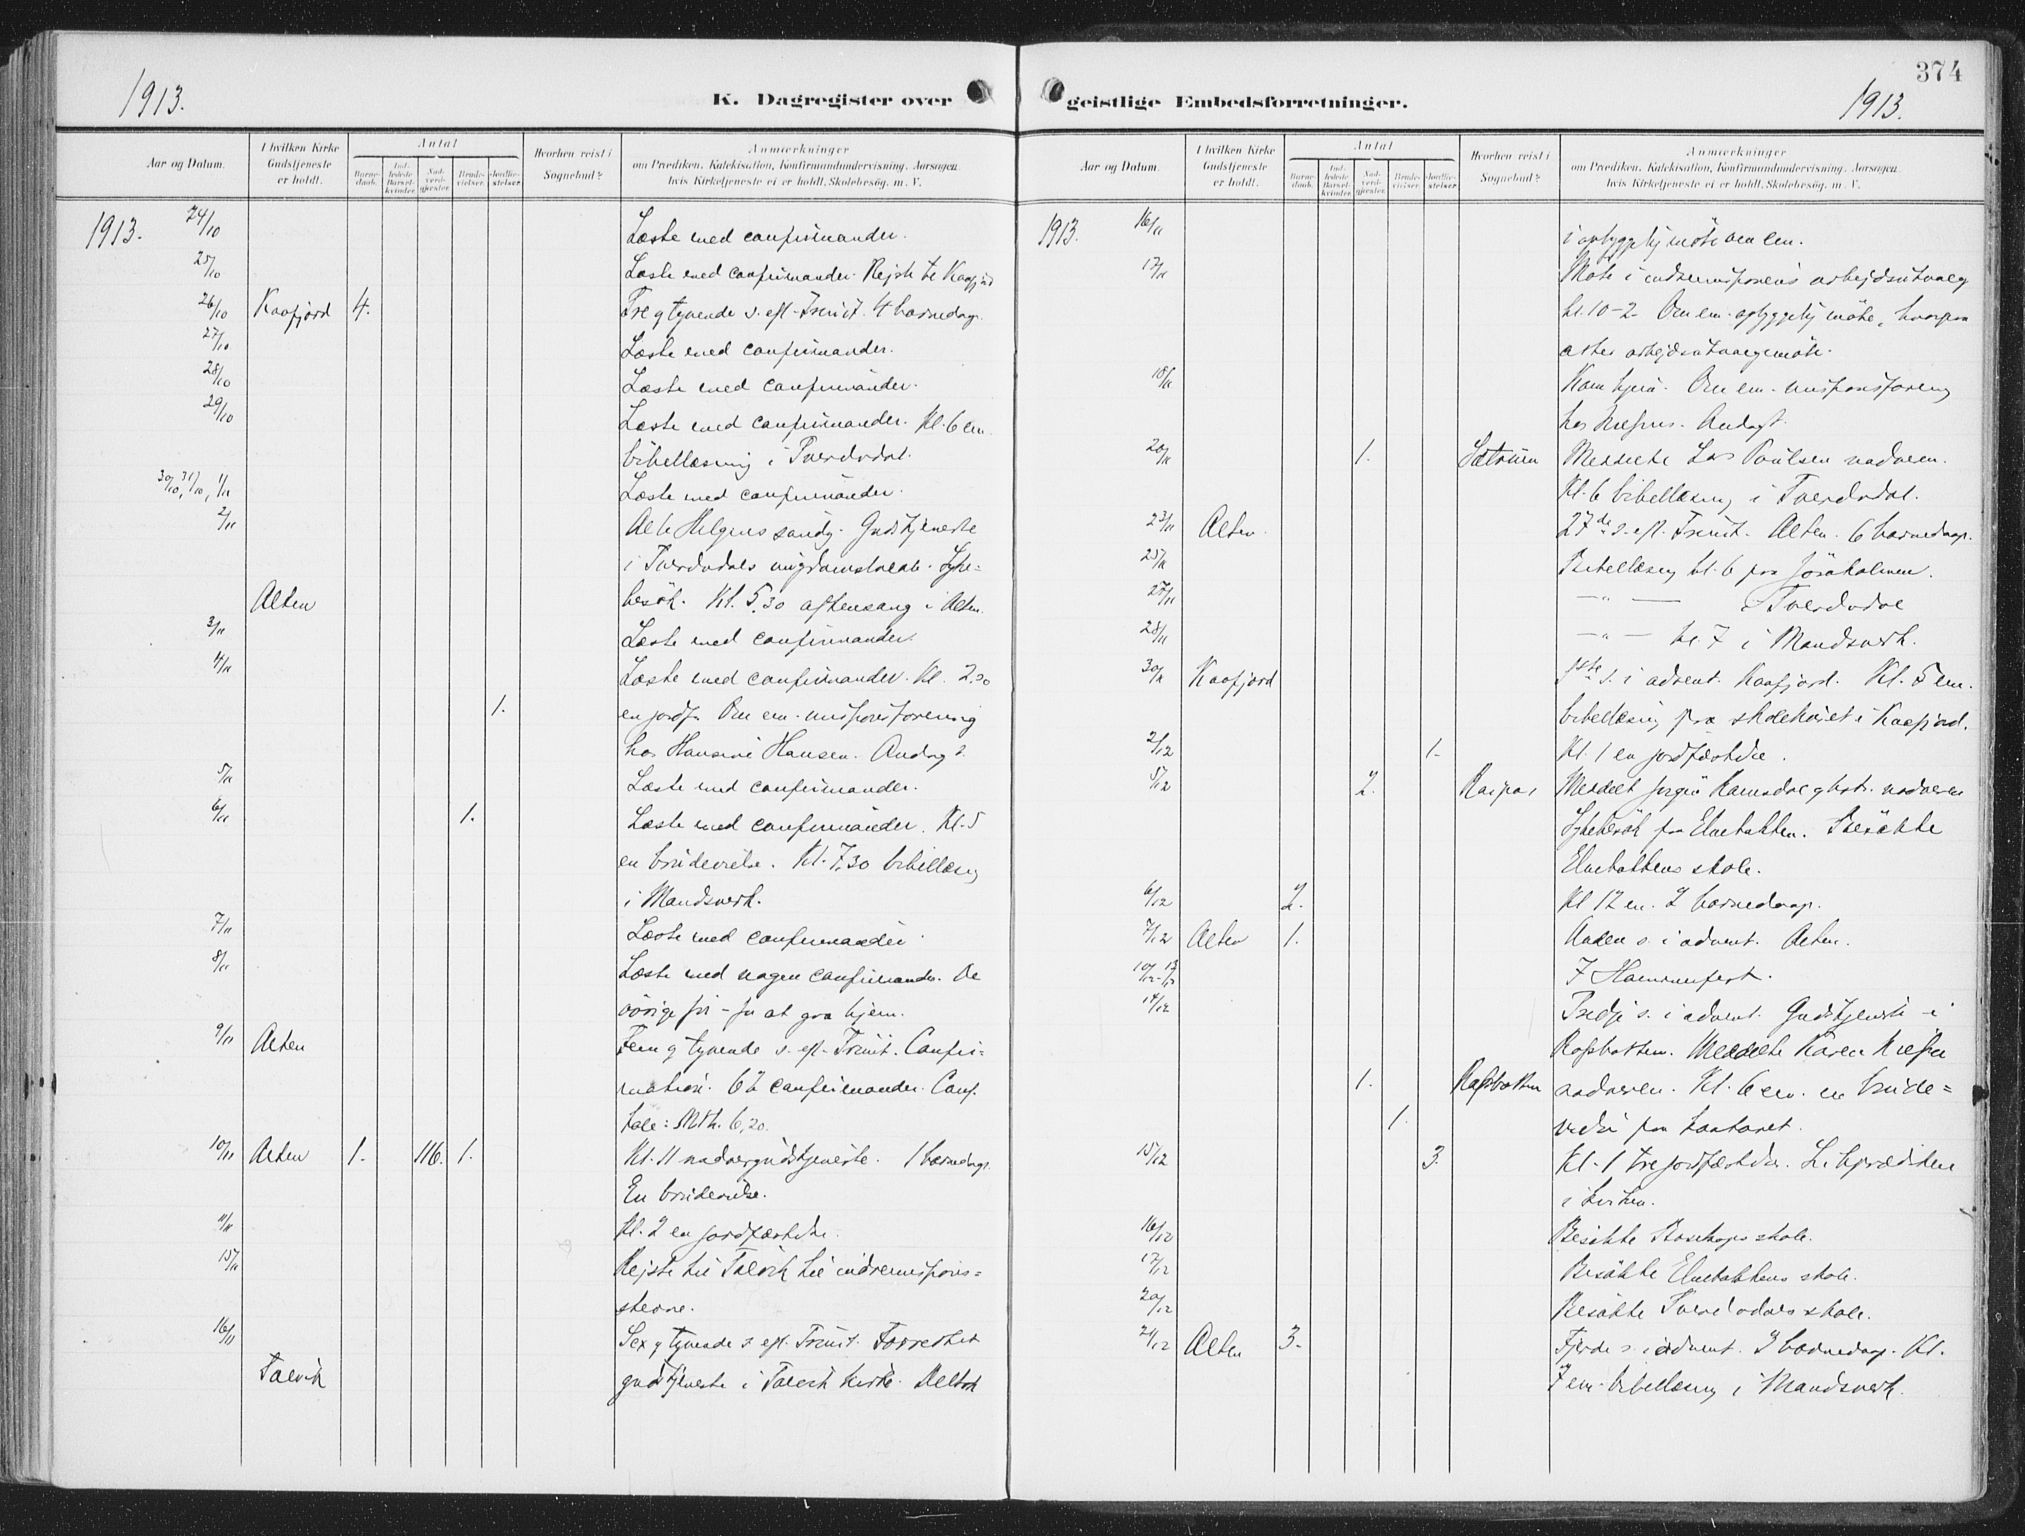 1913.
K. Dagregister over
Aar og Datum.
I hvilken Kirke Gudstjeneste er holdt.
Antal
Barnedaab.
Indledede Barselkvinder.
Nadverdgjester.
Brudevielser.
Jordfæstelser.
Hvorhen reist i Sognebud?
Anmærkninger
om Prædiken, Katekisation, Konfirmandundervisning, Aarsagen
hvis Kirketjeneste ei er holdt, Skolebesøg, m. V.
1913. 24/10 Læste med confirmander.
25/10 Læste med confirmander. Rejste te Kaafjord
26/10 Kaafjord 4. Tre og tyvende s. eft. Trinit. 4 barnedaap.
27/10 Læste med confirmander.
28/10 Læste med confirmander.
29/10 Læste med confirmander. Kl. 6 em.
bibellæsning i Tverdvdal.
30/10, 31/10, 1/11 Læste med confirmander.
2/11 Alle Helgens sønd. Gudstjeneste
i Tverdvdals ungdomslokale. Syke=
Alten besök. Kl. 5.30 aftensang i Alten.
3/11 Læste med confirmander.
4/11 Læste med confirmander. Kl. 2.30
1. en jordf. Om em. misjonsforening
hos Hansine Hansen. Andagt.
5/11 Læste med confirmander.
6/11 1. Læste med confirmander. Kl. 5
en brudevielse. Kl. 7.30 bibellæsn.
i Mandsverk.
7/11 Læste med confirmander.
8/11 Læste med nogen confirmander. De
övrige fri - for at gaa hjem.
9/11 Alten Fem og tyvende s. eft. Trinit. Confir=
mation. 62 confirmander. Conf.
tale: Mth. 6,20.
10/11 Alten 1. 116. 1. Kl. 11 nadvergudstjeneste. 1 barnedaap.
En brudevielse.
11/11 Kl. 2 en jordfæstelse.
15/11 Rejste til Talvik til indremisjons=
stevne.
16/11 Sex og tyvende s. eft. Trinit. Forrettet
Talvik gudstjeneste i Talvik kirke. Deltok
374
1913.
geistlige Embedsforretninger.
Aar og Datum.
I hvilken Kirke Gudstjeneste er holdt.
Antal
Barnedaab.
Indledede Barselkvinder.
Nadverdgjester.
Brudevielser.
Jordfæstelser.
Hvorhen reist i Sognebud?
Anmærkninger
om Prædiken, Katekisation, Konfirmandundervisning, Aarsagen
hvis Kirketjeneste ei er holdt, Skolebesøg, m. V.
1913. 16/11 i opbyggelj. möte om em.
17/11 Möte i indremisjonens arbejdsutvalg
kl. 10-2. Om em. opbyggelj möte, hvorpaa
atter arbejdsutvalgsmöte.
18/11 Kom hjem. Om em. misjonsforening
hos Andagt.
20/11 1. Meddelte Lars Poulsen nadveren.
Kl. 6 bibellæsning i Tverdvdal.
23/11 Alten. 27de s. eft. Trinit. Alten. 6 barnedaap.
25/11 Bibellæsning kl. 6 paa Jöraholmen.
27/11 —"— Tverdvdal
28/11 —"— kl. 7 i Mandsverk.
30/11 Kaafjord 1ste s. i advent. Kaafjord. Kl. 5 em.
bibellæsning paa skolehuset i Kaafjord.
2/12 1. Kl. 1 en jordfæstelse.
5/12 2. Raipas Meddelt nadveren
Sykebesök paa Elvebakken. Besökte
Elvebakkens skole.
6/12 2. Kl 12 em. 2 barnedaap.
7/12 Alten 1. Anden s. i advent. Alten.
10/12-13/12 I Hammerfest.
14/12 Tredje s. i advent. Gudstjeneste i
Rafsbotten. Meddelte Karen
1. Rafsbotten nadveren. Kl. 6 em. en brude=
1. vielse paa kontoret.
15/12 3. Kl. 1 tre jordfæstelser. Ligprædiken
i kirken.
16/12 Besökte Bosekops skole.
17/12 Besökte Elvebakkens skole.
20/12 Besökte Tverdvdals skole.
21/12 Alten 3. Fjerde s. i advent. 3 barnedaap. Kl.
7 em. bibellæsning i Mandsverk.